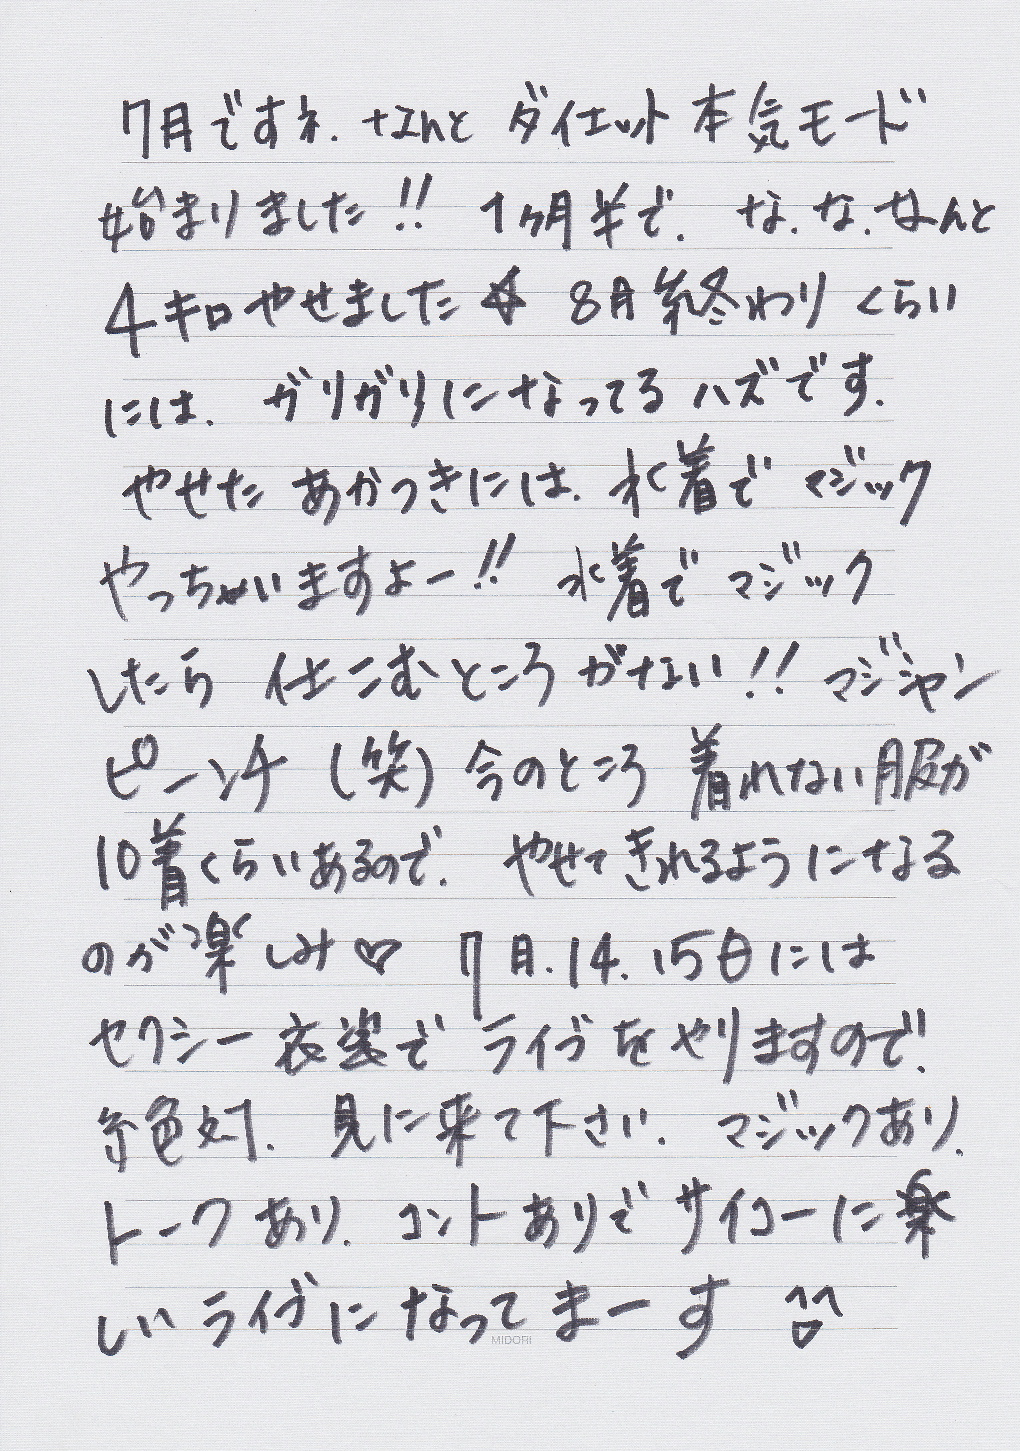 7月ですネ.なんとダイエット本気モード
始まりました!! 1ヶ月半で.な.な.なんと
4キロやせました☆ 8月終わりくらい
には.ガリガリになってるハズです.
やせたあかつきには.水着でマジック
やっちゃいますよー!! 水着でマジック
したら仕こむところがない!! マジシャン
ピーンチ(笑)今のところ着れない服が
10着くらいあるので.やせてきれるようになる
のが楽しみ♡ 7月.14.15日には
セクシー衣裳でライブをやりますので!
絶対.見に来て下さい.マジックあり.
トークあり.コントありでサイコーに楽
しいライブになってまーす
MIDORI